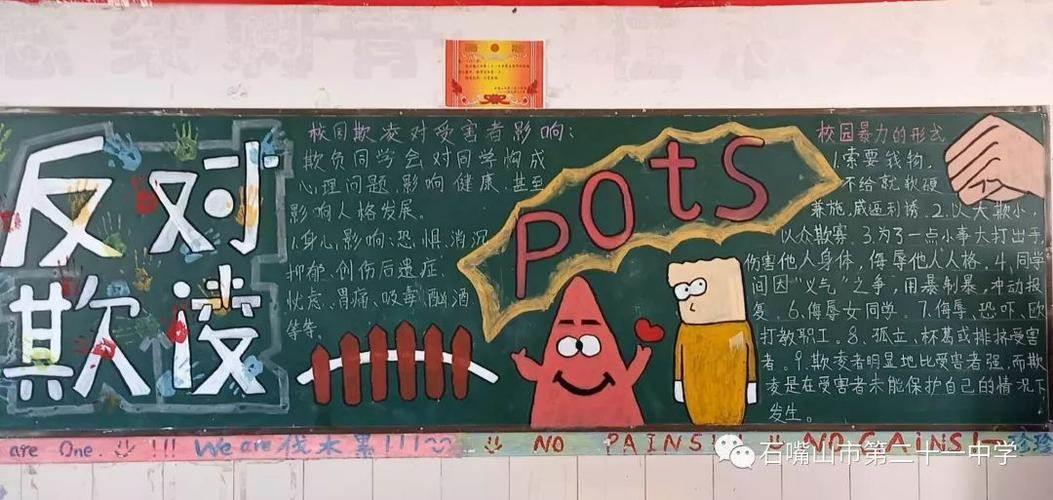 反对
欺凌
校园欺凌对受害者影响:
欺负同学会对同学构成
心理问题,影响健康,甚至
影响人格发展。
1.身心影响:恐惧、消沉
抑郁、创伤后遗症、
忧虑、胃痛、吸毒、酗酒
等等.
POtS
校园暴力的形式
1.索要钱物,
不给就软硬
兼施,威逼利诱。2.以大欺小,
以众欺寡。3.为了一点小事大打出手,
伤害他人身体,侮辱他人人格。4.同学
间因"义气"之争,用暴制暴,冲动报
复。6.侮辱女同学。7.侮辱、恐吓、欧
打教职工。8.孤立、杯葛或排挤受害
者。9.欺凌者明显地比受害者强,而欺
凌是在受害者未能保护自己的情况下
发生。
are One. !!! We are 伐木累!!! NO PAINS! NO GAINS!
石嘴山市第二十一中学